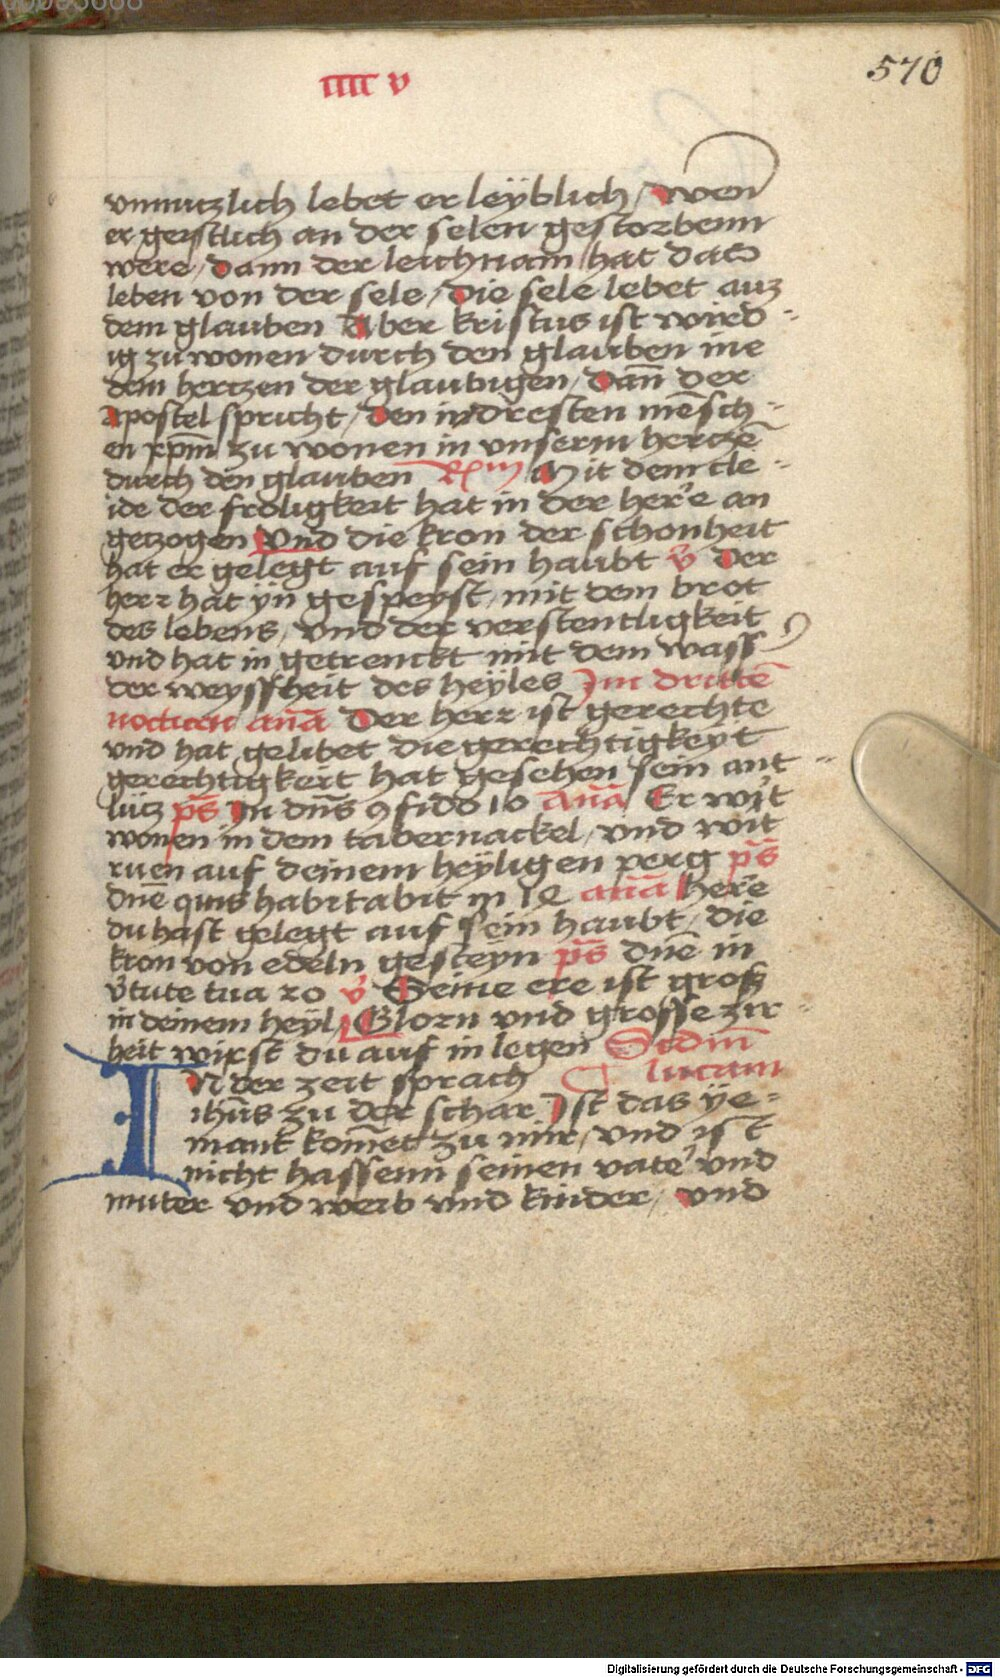 570
iiii v
vnnutzlich lebet er leÿblich / wen
er geistlich an der selen gestorbenn
were / dann der leichnam hat das
leben von der sele / die sele lebet auz
dem glauben Aber kristus ist wird-
ig zu wonen durch den glauben ine
dem hertzen der glaubigen / dan̄ der
apostel spricht / den indresten mēsch-
en xp̄m zu wonen in vnserm hertzē
durch den glauben Mit dem cle-
ide der froligkeit hat in der her'e an
getzogen Vnd die kron der schonheit
hat er gelegt auf sein haubt v̄ Der
herr hat ÿn gespeyst / mit dem brot
des lebens / vnd der verstentligkeit
vnd hat in getrenckt mit dem wass
der weyssheit des heÿles Im drittē
nocturn an̄a Der herr ist gerechte
vnd hat gelibet die gerechtigkeyt
gerechtigkeit hat gesehen sein ant-
lutz ps̄ In dn̄s 9fido 10 An̄a Er wirt
wonen in dem tabernackel / vnd wirt
ruen auf deinem heyligen perg ps̄
dn̄e quis habitabit in an̄a Her'e
du hast gelegt auf sein haubt / die
kron von edeln gesteyn ps̄ dn̄e in
v'tute tua 20 v̄ Seine ere ist groß
in deinem heyl / Glorn vnd grosse zir-
heit wirst du auf in legen Scdm̄
IN der zeit sprach lucam
ihūs zu der schar Ist das ÿe-
mant kom̄et zu mir / vnd ist
nicht hassenn seinen vate' vnd
muter vnd weib vnd kinder / vnd
Digitalisierung gefördert durch die Deutsche Forschungsgemeinschaft - DFG